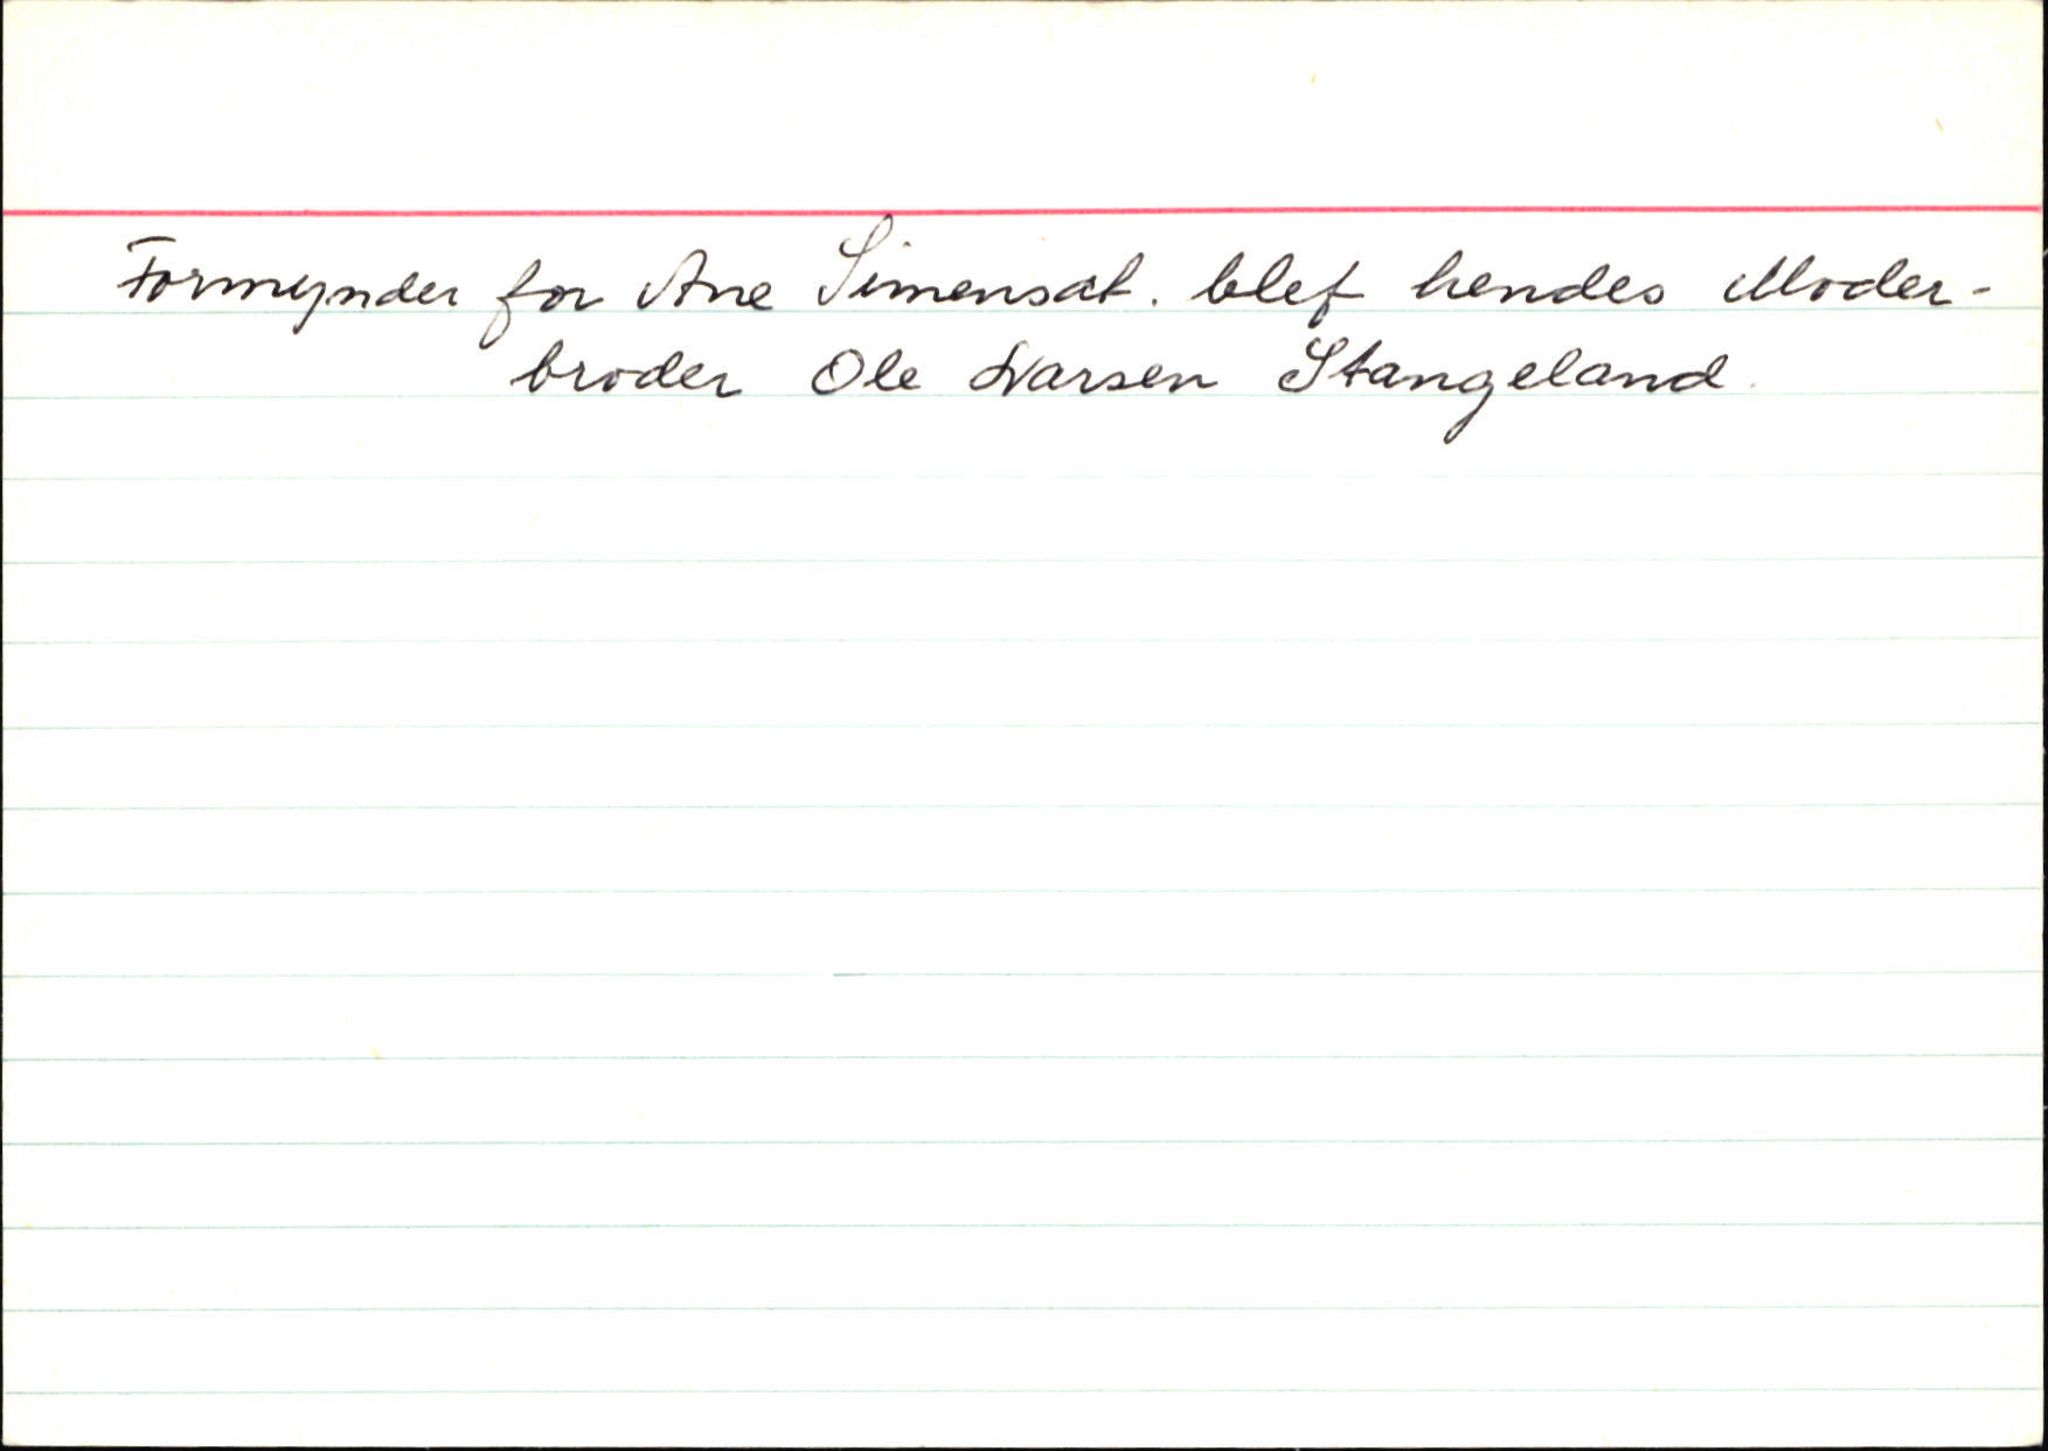 Formynder for Ane Simensdt. blef hendes Moder-
broder Ole Larsen Stangeland.